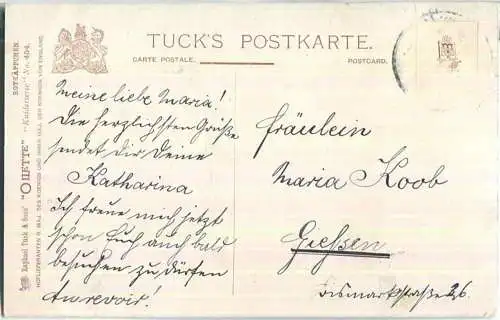 TUCK'S POSTKARTE.
CARTE POSTALE.
POSTCARD.
ROTKÄPPCHEN.
Raphael Tuck & Sons' "OILETTE" No. 404.
HOFLIEFERANTEN S. MAJ. DES KOENIGS UND IHRER MAJ. DER KOENIGIN VON ENGLAND.
Meine liebe Maria!
Die herzlichsten Grüße
sendet dir Deine
Katharina
Ich freue mich jetzt
schon Euch auch bald
besuchen zu dürfen
Aurevoir!
Fräulein
Maria Koob
Giessen
Bismarkstraße 26.